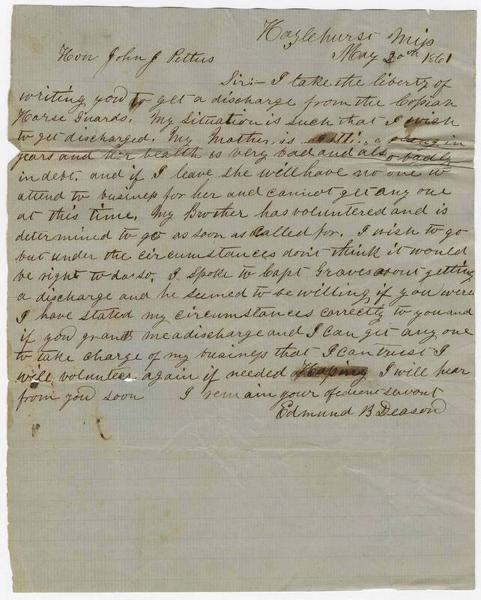 Hazlehurst Miss
May 20th 1861
Hon John J Pettus
Sir:- I take the liberty of
writing you to get a discharge from the Copiah
Horse Guards. My situation is such that I wish
to get discharged. My Mother is
years and her health is very bad and also badly
in debt. and if I leave she will have no one to
attend to business for her and cannot get any one
at this time. My Brother has volunteered and is
determined to go as soon as called for. I wish to go
but under the circumstances don't think it would
be right to do so. I spoke to Capt Graves about getting
a discharge and he seemed to be willing if you were
I have stated my circumstances correctly to you and
if you grant me a discharge and I can get any one
to take charge of my business that I can trust I
will volunteer again if needed Hoping I will hear
from you soon I remain your obedient servant
Edmund B Deason